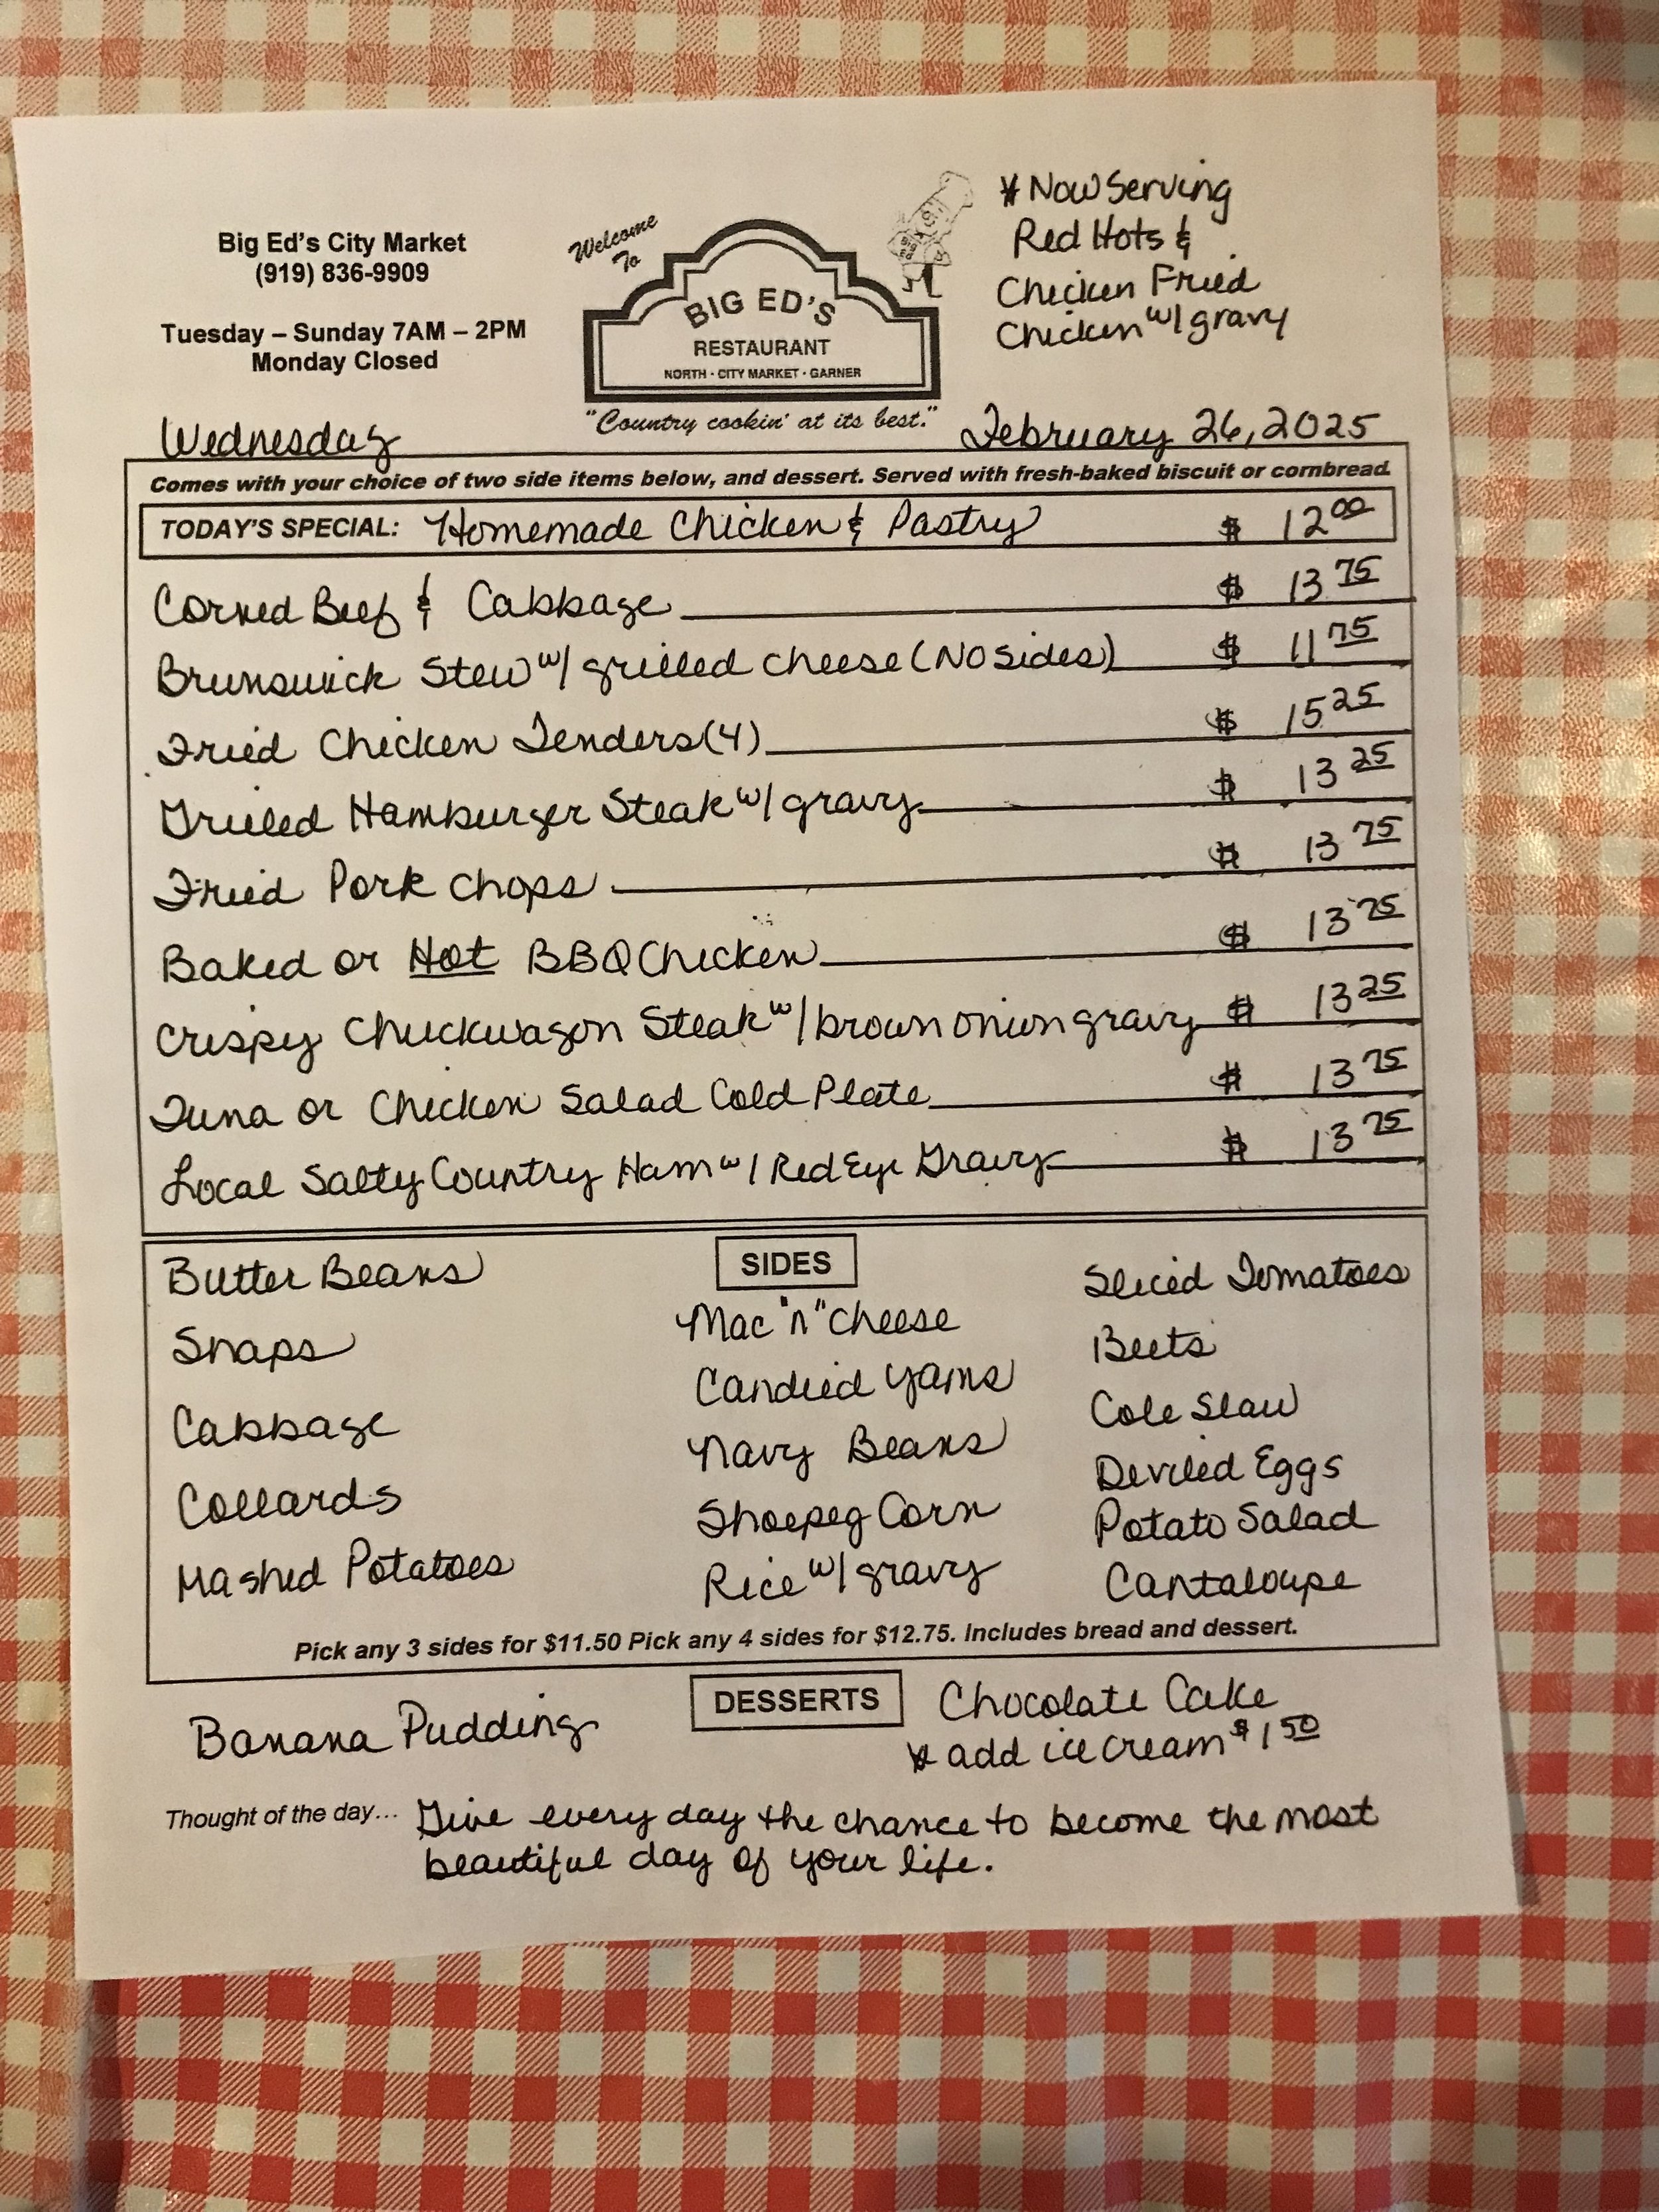 Big Ed's City Market
(919) 836-9909
Tuesday – Sunday 7AM – 2PM
Monday Closed
Welcome
To
BIG ED'S
RESTAURANT
NORTH · CITY MARKET · GARNER
"Country cookin' at its best."
* Now Serving
Red Hots &
Chicken Fried
Chicken w/ gravy
Wednesday February 26, 2025
Comes with your choice of two side items below, and dessert. Served with fresh-baked biscuit or cornbread.
TODAY'S SPECIAL: Homemade Chicken & Pastry $ 12 00
Corned Beef & Cabbage $ 13 75
Brunswick Stew w/ grilled cheese (No sides) $ 11 75
Fried Chicken Tenders (4) $ 15 25
Grilled Hamburger Steak w/ gravy $ 13 25
Fried Pork Chops $ 13 75
Baked or Hot BBQ Chicken $ 13 75
Crispy Chuckwagon Steak w/ brown onion gravy $ 13 25
Tuna or Chicken Salad Cold Plate $ 13 75
Local Salty Country Ham w/ Red Eye Gravy $ 13 75
SIDES
Butter Beans
Snaps
Cabbage
Collards
Mashed Potatoes
Mac "n" Cheese
Candied Yams
Navy Beans
Shoepeg Corn
Rice w/ gravy
Sliced Tomatoes
Beets
Cole Slaw
Deviled Eggs
Potato Salad
Cantaloupe
Pick any 3 sides for $11.50 Pick any 4 sides for $12.75. Includes bread and dessert.
DESSERTS
Banana Pudding
Chocolate Cake
* add ice cream $1 50
Thought of the day... Give every day the chance to become the most
beautiful day of your life.